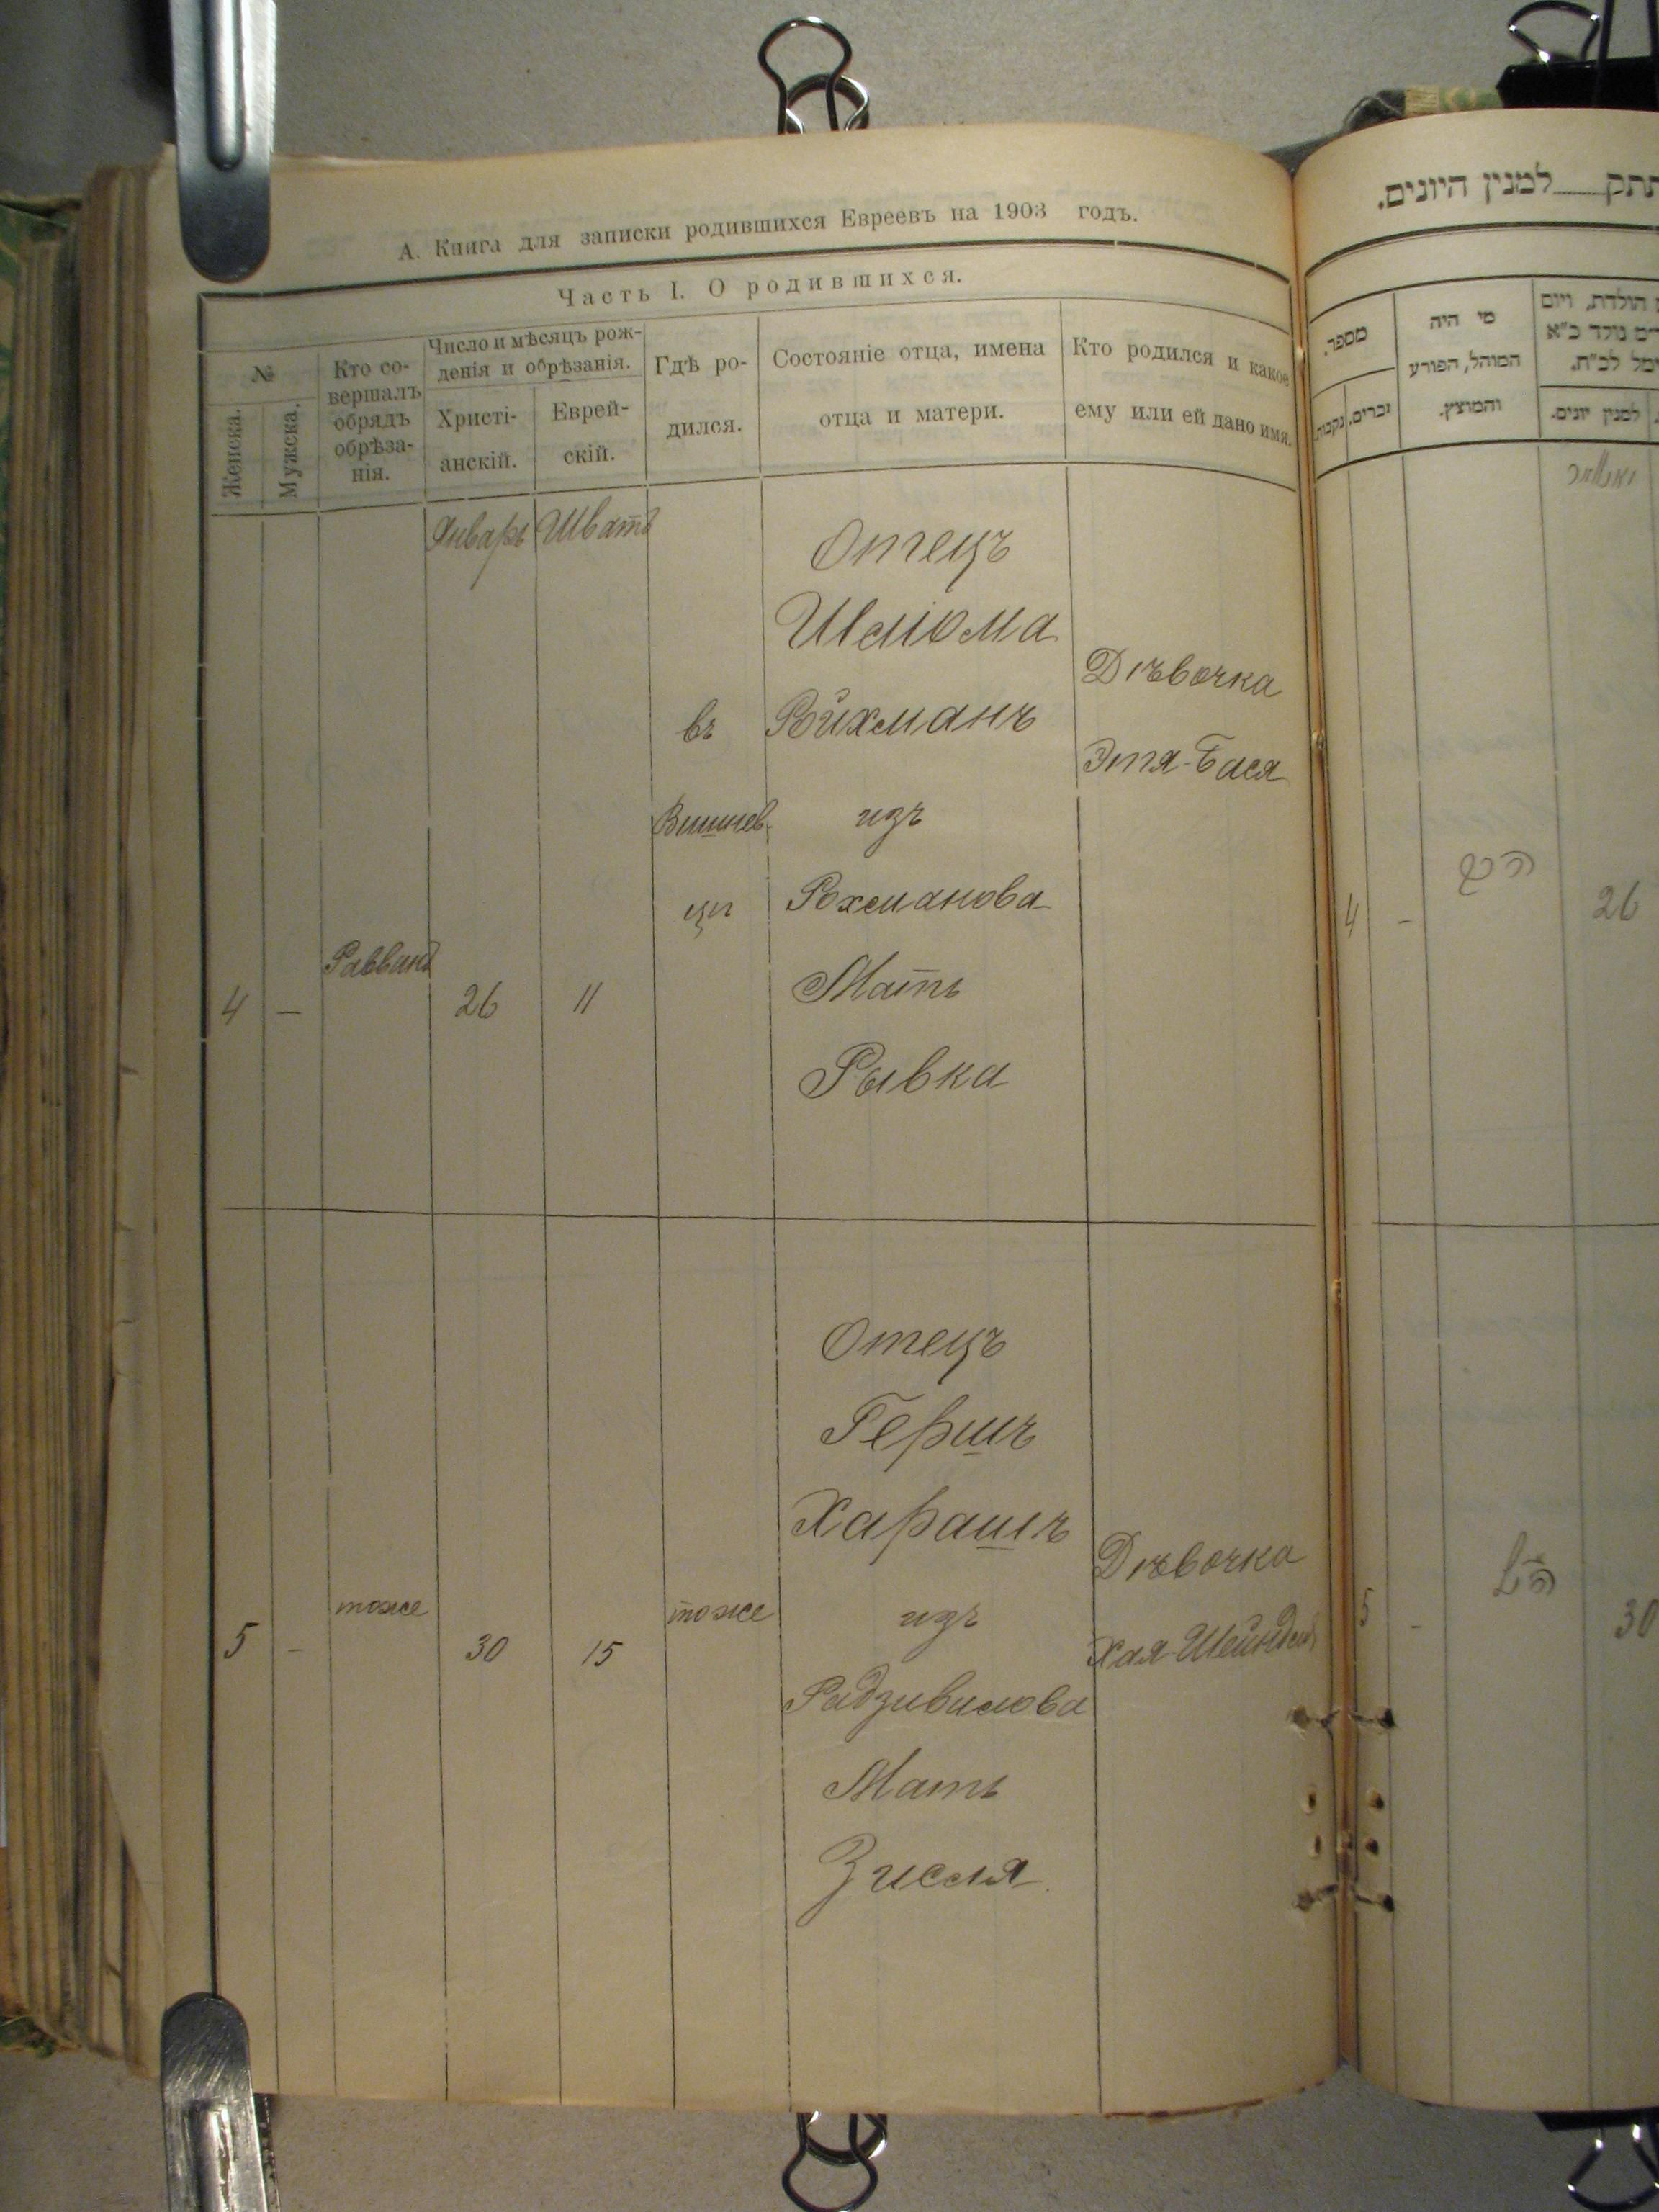 А. Книга для записки родившихся Евреевъ на 1903 годъ.
Часть I. О родившихся.
№
Женска.
Мужска.
Кто со-
вершалъ
обрядъ
обрѣза-
нія.
Число и мѣсяцъ рож-
денія и обрѣзанія.
Христі-
анскій.
Еврей-
скій.
Гдѣ ро-
дился.
Состояніе отца, имена
отца и матери.
Кто родился и какое
ему или ей дано имя.
Январь Шватъ
4 — Раввинъ 26 11
въ
Вишнев-
цѣ
Отецъ
Шліома
Ройхманъ
изъ
Рохманова
Мать
Рывка
Дѣвочка
Этя-Бася
5 - тоже 30 15 тоже
Отецъ
Гершъ
Харашъ
изъ
Радзивилова
Мать
Зисля
Дѣвочка
Хая-Шейндля
תתק למנין היונים.
מספר.
נקבות.
זכרים.
מי היה
המוהל, הפורע
והמוצץ.
הולדת, ויום
נולד כ"א
למנין יונים.
4 -
26
5 -
30